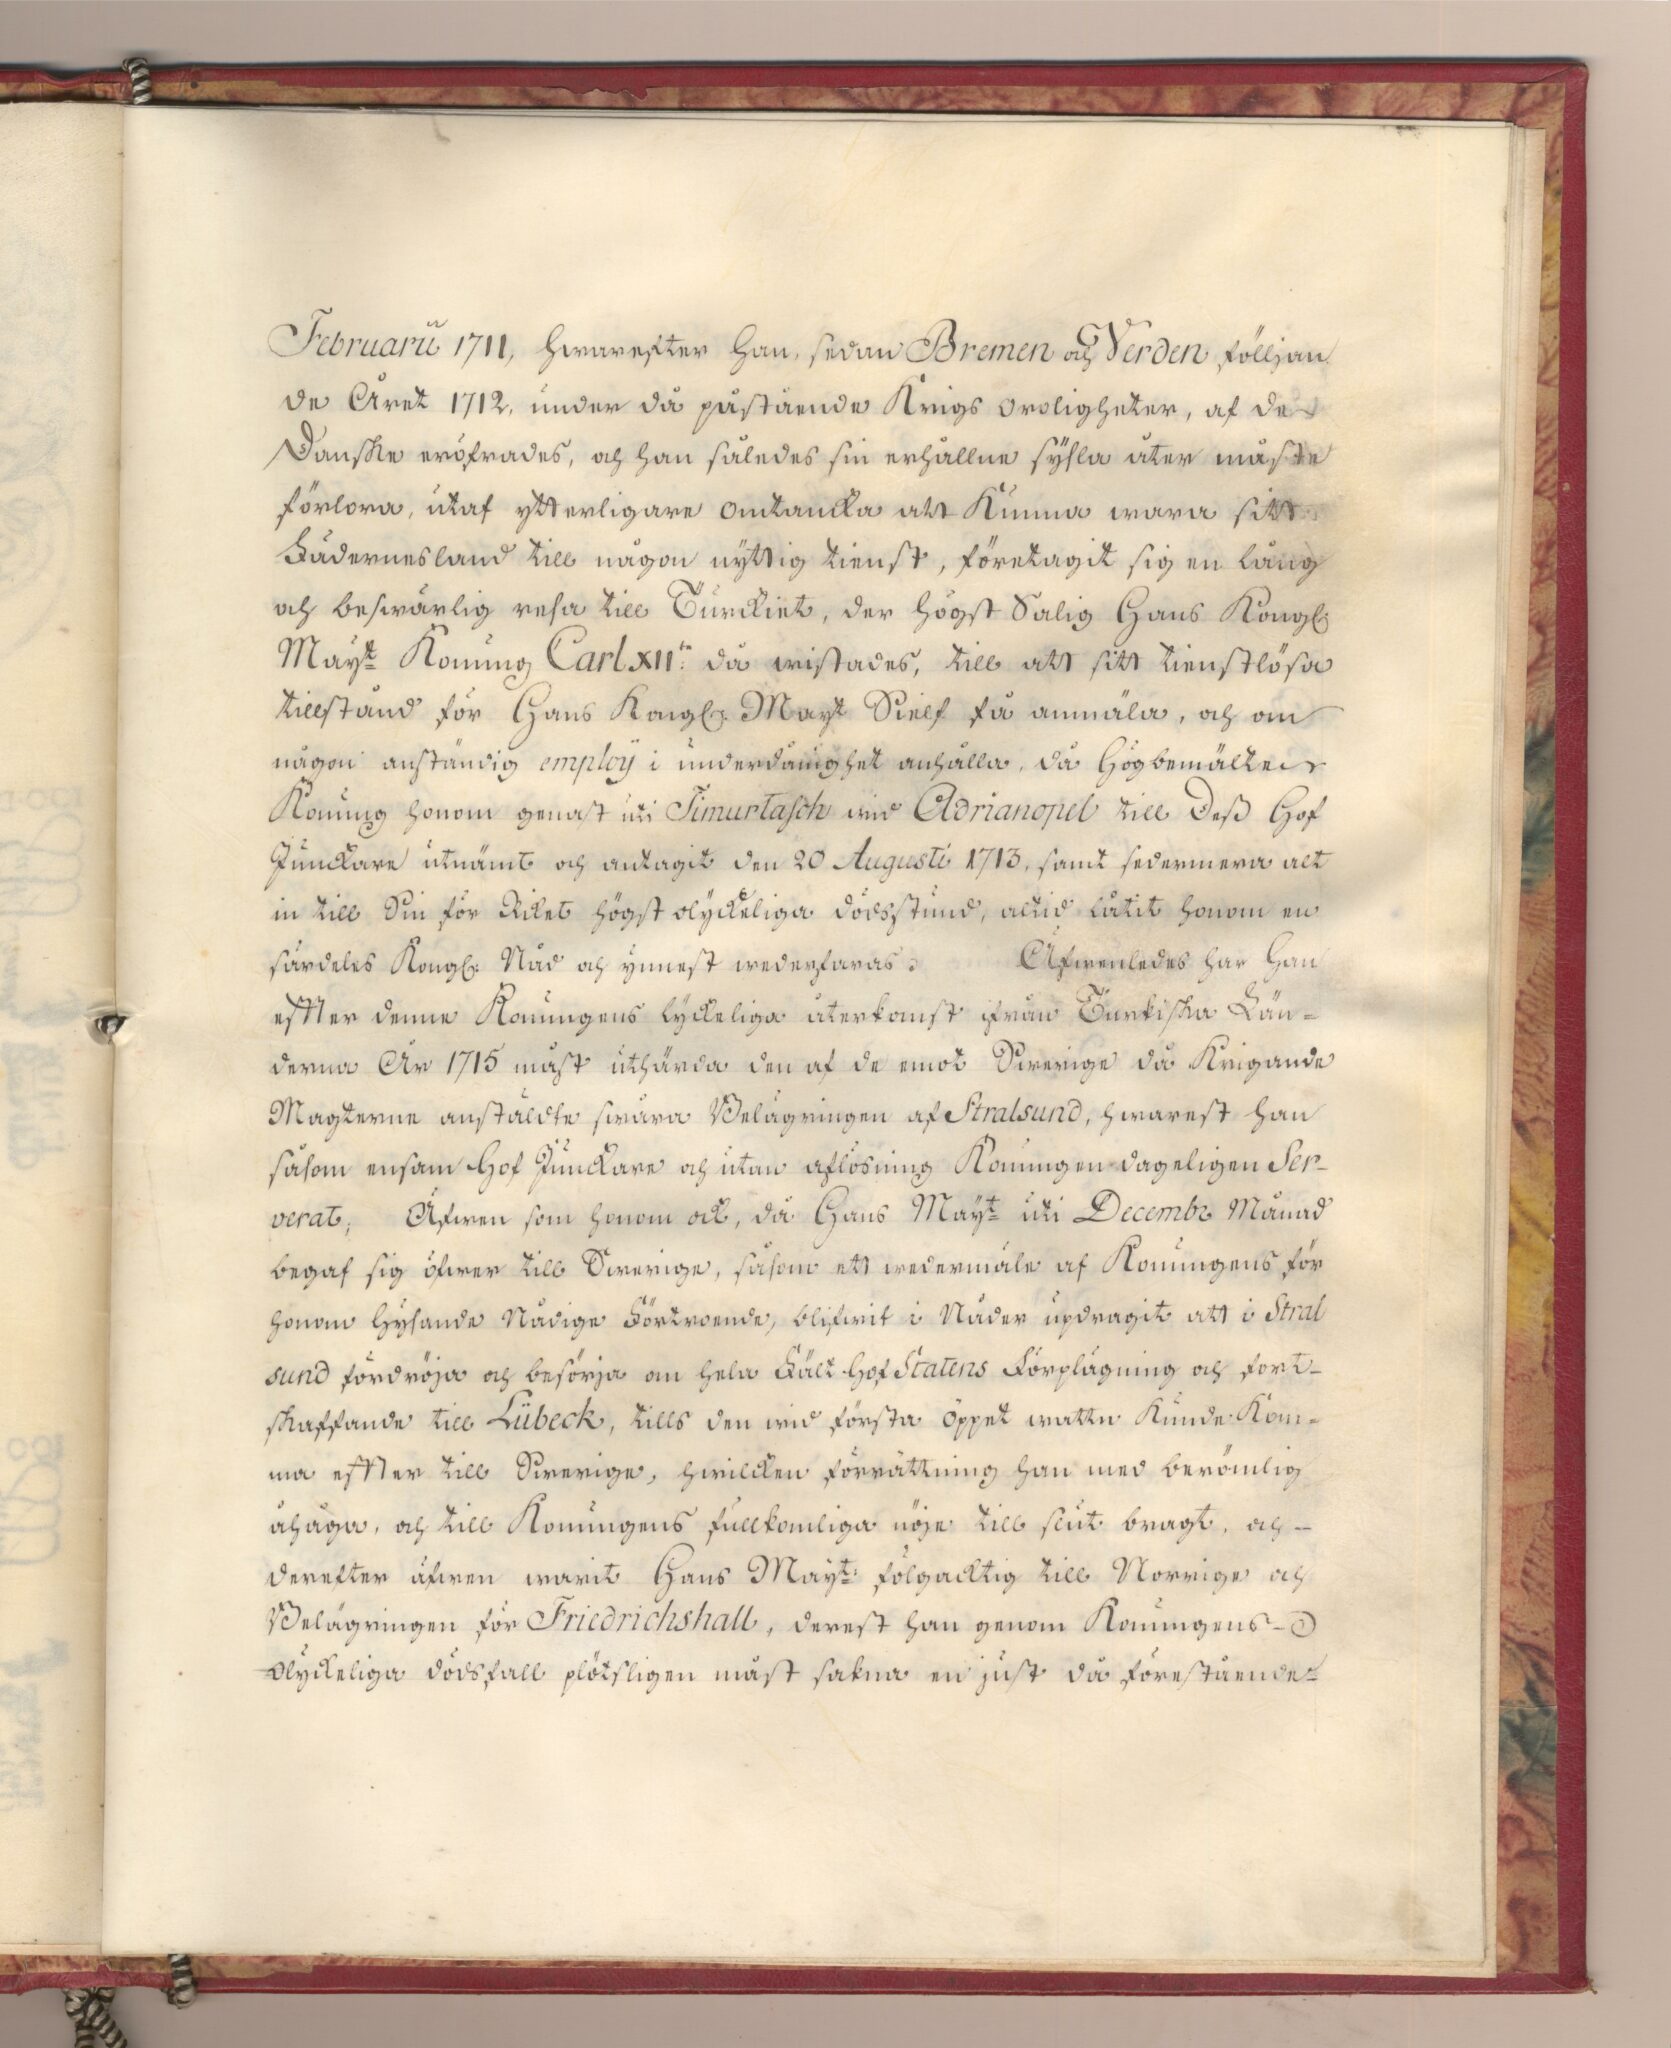 Februarii 1711, hwarefter han, sedan Bremen och Verden följjan
de Året 1712, under då påstående Krigs oroligheter, af de
Danske eröfrades, och han således sin erhållne syßla åter måste
förlora, utaf ytterligare omtancka att Kunna wara sitt
Fädernesland till någon nyttig tienst, företagit sig en lång
och beswärlig resa till Turckiet, der högst Salig Hans Kongl:
Mayt Konung Carl XII:te då wistades, till att sitt tienstlösa
tillstånd för Hans Kongl: Mayt Sielf få anmäla, och om
någon anständig employ i underdånighet anhålla, då Högbemälte
Konung honom genast uti Timurtasch wid Adrianopel till Deß Hof
Junckare utnämt och antagit den 20 Augusti 1713, samt sedermera alt
in till Sin för Riket högst olyckeliga dödsstund, altid låtit honom en
särdeles Kongl: Nåd och ynnest wederfaras. Äfwenledes har Han
effter denne Konungens lyckeliga återkomst ifrån Turkiska Län-
derna År 1715 måst uthärda den af de emot Swerige då Krigande
Magterne anstäldte swåra Belägringen af Stralsund, hwarest han
såsom ensam Hof Junckare och utan aflösning Konungen dageligen Ser-
verat, Äfwen som honom ock, då Hans Mayt uti Decembr Månad
begaf sig öfwer till Swerige, såsom ett wedermäle af Konungens för
honom hysande Nådige Förtroende, blifwit i Nåder updragit att i Stral
sund fördröja och besörja om hela Fält-Hof Statens Förplägning och fort-
skaffande till Lübeck, tills den wid första öppet wattn Kunde Kom-
ma effter till Swerige, hwilcken förrättning han med berömlig
åhåga, och till Konungens fullkomliga nöje till slut bragt, och
derefter äfwen warit Hans Mayt: fölgacktig till Norrige och
Belägringen för Friedrichshall, derest han genom Konungens
olyckeliga dödsfall plötsligen måst sakna en just då förestående